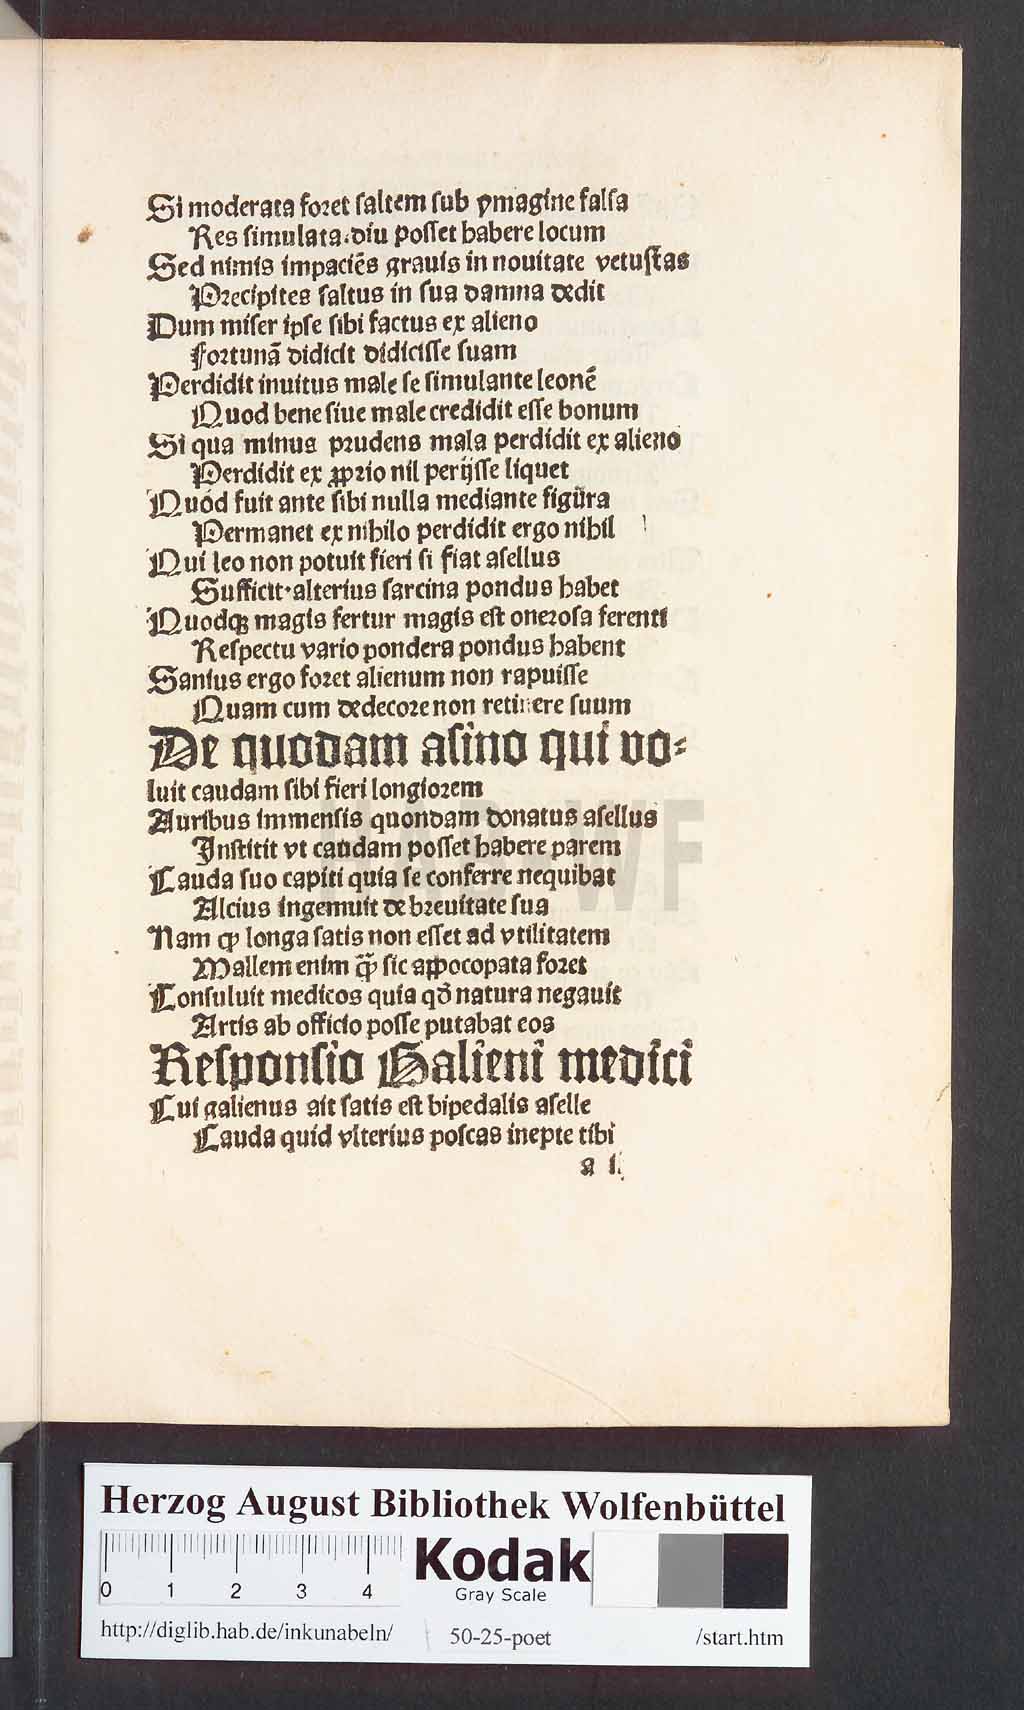 Si moderata foret saltem sub ymagine falsa
Res simulata. diu posset habere locum
Sed nimis impaciēs grauis in nouitate vetustas
Precipites saltus in sua damna dedit
Dum miser ipse sibi factus ex alieno
Fortunā didicit didicisse suam
Perdidit inuitus male se simulante leonē
Quod bene siue male credidit esse bonum
Si qua minus prudens mala perdidit ex alieno
Perdidit ex ꝓprio nil perijsse liquet
Quod fuit ante sibi nulla mediante figura
Permanet ex nihilo perdidit ergo nihil
Qui leo non potuit fieri si fiat asellus
Sufficit·alterius sarcina pondus habet
Quodqꝫ magis fertur magis est onerosa ferenti
Respectu vario pondera pondus habent
Sanius ergo foret alienum non rapuisse
Quam cum dedecore non retinere suum
De quodam asino qui vo⸗
luit caudam sibi fieri longiorem
Auribus immensis quondam donatus asellus
Institit vt caudam posset habere parem
Cauda suo capiti quia se conferre nequibat
Alcius ingemuit de breuitate sua
Nam ꝙ longa satis non esset ad vtilitatem
Mallem enim ꝙ̃ sic appocopata foret
Consuluit medicos quia qđ natura negauit
Artis ab officio posse putabat eos
Responsio Galieni medici
Cui galienus ait satis est bipedalis aselle
Cauda quid vlterius poscas inepte tibi
a i.
HAB WF
Herzog August Bibliothek Wolfenbüttel
0 1 2 3 4
Kodak
Gray Scale
http://diglib.hab.de/inkunabeln/ 50-25-poet /start.htm